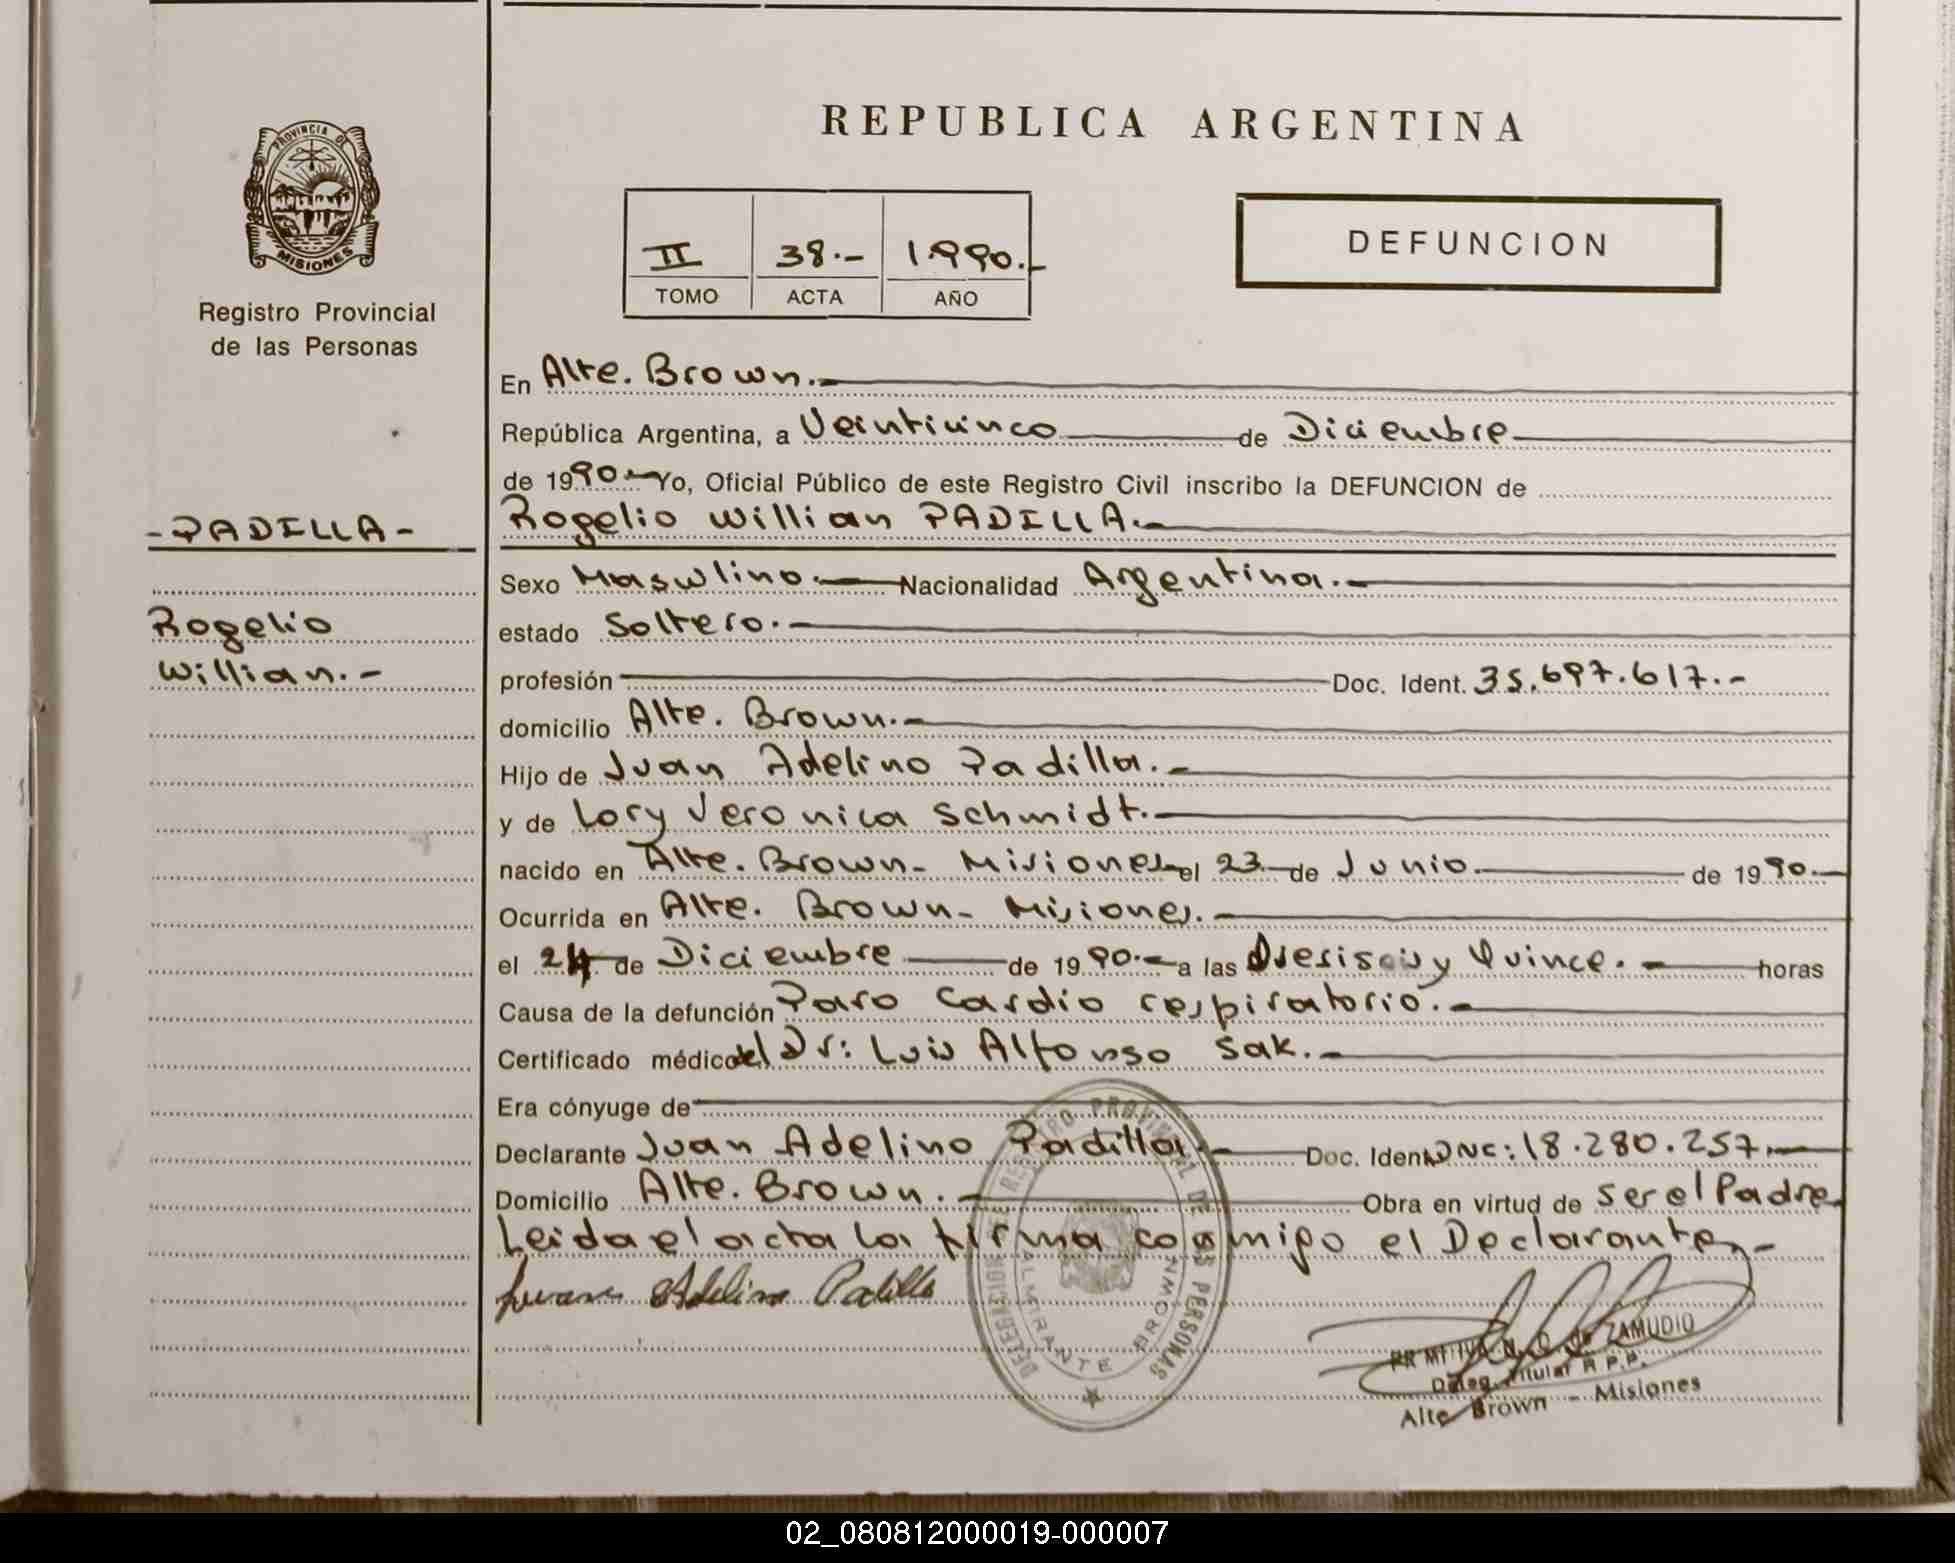 PROVINCIA DE
MISIONES
Registro Provincial
de las Personas
REPUBLICA ARGENTINA
II 38.- 1.990.-
TOMO ACTA AÑO
DEFUNCION
En Alte. Brown.-
República Argentina, a Veinticinco de Diciembre
de 1990.- Yo, Oficial Público de este Registro Civil inscribo la DEFUNCION de
-PADILLA-
Rogelio Willian PADILLA.-
Sexo Masculino.- Nacionalidad Argentina.-
Rogelio
Willian.-
estado Soltero.-
profesión Doc. Ident. 35.697.617.-
domicilio Alte. Brown.-
Hijo de Juan Adelino Padilla.-
y de Lory Veronica Schmidt.-
nacido en Alte. Brown- Misiones el 23 de Junio. de 1990.-
Ocurrida en Alte. Brown- Misiones.-
el 24 de Diciembre de 1990.- a las Dieriseis y Quince.- horas
Causa de la defunción Paro Cardio respiratorio.-
Certificado médico del Dr: Luis Alfonso Sak.-
Era cónyuge de
Declarante Juan Adelino Padilla.- Doc. Ident. DNC: 18.280.257.-
Domicilio Alte. Brown.- Obra en virtud de ser el Padre
Leida el acta la firma conmigo el Declarante.-
Juan Adelino Padilla
DELEGACION DE REGISTRO PROVINCIAL DE LAS PERSONAS
ALMIRANTE BROWN
PRIMITIVA N. D. de ZAMUDIO
Deleg. Titular R.P.P.
Alte Brown - Misiones
02_080812000019-000007